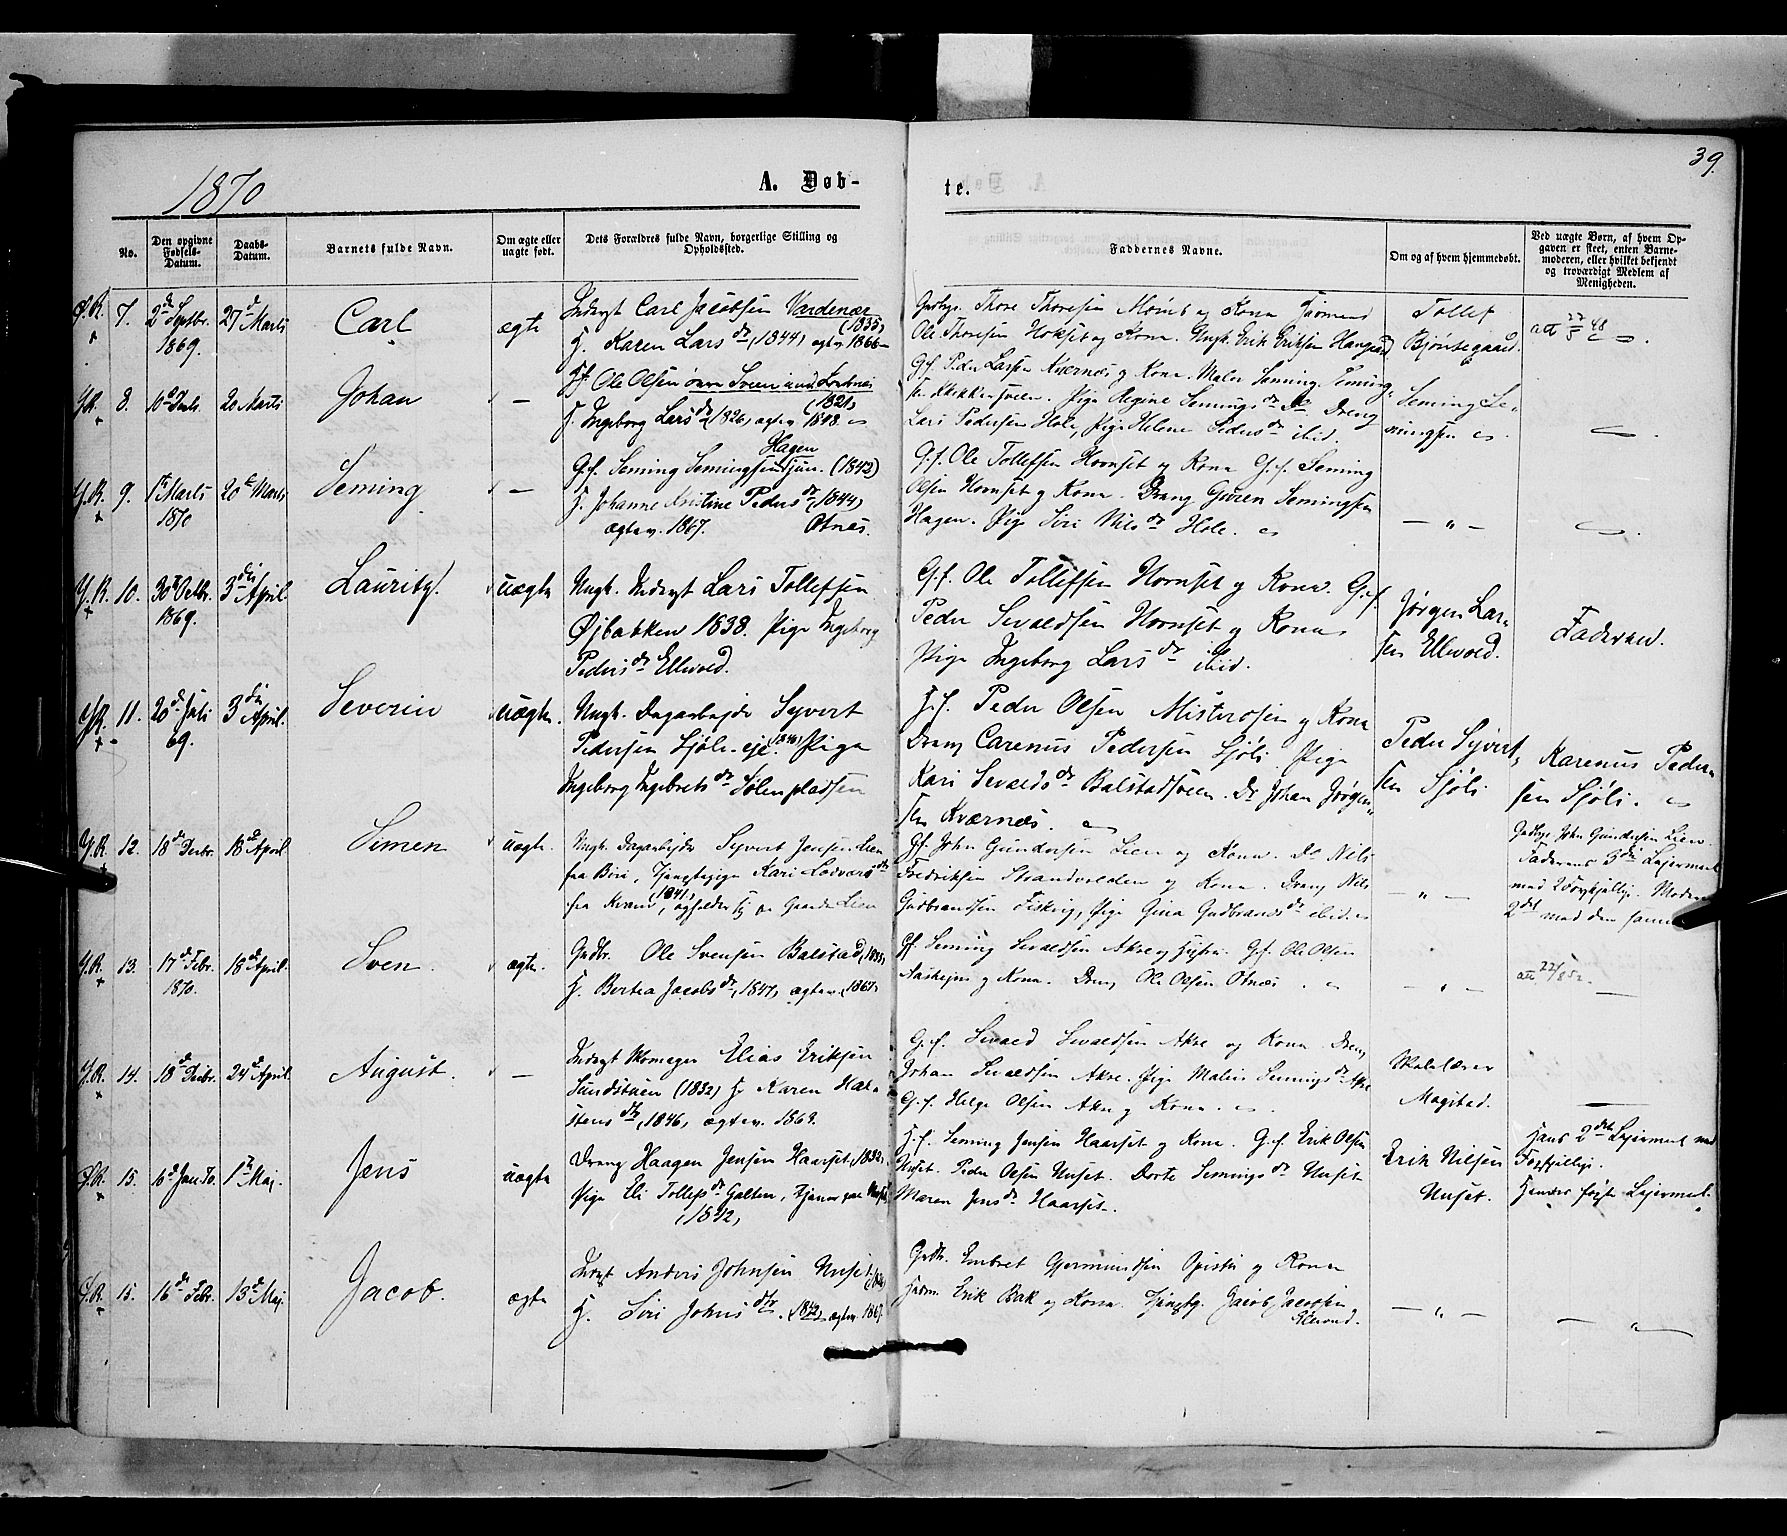 1870
A. Døb-
te.
39.
No.
Den opgivne Fødsels-Datum.
Daabs-Datum.
Barnets fulde Navn.
Om ægte eller uægte født.
Dets Forældres fulde Navn, borgerlige Stilling og Opholdssted.
Faddernes Navne.
Om og af hvem hjemmedøbt.
Ved uægte Børn, af hvem Opgaven er skeet, enten Barnemoderen, eller hvilket bekjendt og troværdigt Medlem af Menigheden.
7. 2den Septbr. 1869. 27de Marts Carl ægte
Indsgt Carl Jacobsen Vardenær (1835)
H. Karen Lars dtr (1844) ægtev. 1866
Gudbr. Thore Thoresen Mømb og Kona
Ole Thoresen Hokset og Kona. Ungk. Erik Eriksen Haugseth
Tollef
Bjøntegaard.
8. 20 Marts Johan —
Hf. Ole Olsen øvre
(1821)
H. Ingeborg Lars dtr (1826) ægtev. 1848.
G.f. Peder Larsen Kværnes og Kona. Maler Seming Seming-
sen Bekkensveen. Pige Regine Semings dtr Do. Dreng
Lars Pedersen Hole, Pige Helene Peders dtr ibid.
Seming Se-
mingsen
9. 1ste Marts 1870 20de Marts Seming —
Hagen
G.f. Seming Semingsen jun. (1842)
H. Johanne Kristine Peders dtr (1844)
ægtev. 1867. Otnes.
G.f. Ole Tollefsen Hornset og Kona G.f. Seming
Olsen Hornset og Kona. Dreng Guren Semingsen
Hagen. Pige Siri Nils dtr Hole.
— " —
Y.R. 10. 30te Octbr. 1869. 3die April Lauritz. uægte
Ungk. Indsgt Lars Tollefsen
Øjbakken 1838. Pige Ingeborg
Peders dtr Ellevold.
G.f. Ole Tollefsen Hornset og Kona. G.f.
Peder Sevaldsen Hornset og Kona
Pige Ingeborg Lars dtr ibid.
Jørgen Lar-
sen Ellevold.
Faderen.
11. 20de Juli 69. 3die April. Severin uægte.
Ungk. Dagarbejder Syvert
Pedersen Sjøli eje. (1846) Pige
Ingeborg Ingebrets dtr Sølenpladsen
H.f. Peder Olsen Misterosen og Kona
Dreng Carenus Pedersen Sjøli. Pige
Kari Sevalds dtr Balstadsveen. Dr. Johan Jørgen-
sen Kværnes.
Peder Syvert-
sen Sjøli
Karenus Peder-
sen Sjøli.
Y.R. 12. 18de Decbr. 18de April Simen uægte.
Ungk. Dagarbejder Syvert Jensen Lien
fra Biri, Tjenestepige Kari Lodvars dtr
fra Kvam (1841), opholder sig paa Gaarden Lien
G.f. John Gundersen Lien og Kona. Do. Nils
Fredriksen Strandvolden og Kona. Dreng Nils
Gudbrandsen Fiskvig, Pige Gina Gudbrands dtr ibid.
— " —
Gudbr. John Gundersen Lien.
Faderens 3die Lejermaal
med 2 forskjellige. Moderens
2det med den samme
Y.R. 13. 17de Febr. 1870. 18de April. Sven. ægte.
Gudbr. Ole Svensen Balstad (1835)
H. Bertea Jacobs dtr (1847) ægtev. (1867)
G.f. Seming Sevaldsen Akre og Hustru. G.f. Ole Olsen
Aaseijen og Kona. Dreng Ole Olsen Otnæs
— " —
Y.R. 14. 18de Decbr. 24de April. August. —
Indsgt Skomager Elias Eriksen
Sundstuen (1832) H. Karen Hal-
stens dtr (1846) ægtev. 1869.
G.f. Sevald Sevaldsen Akre og Kona. Dreng
Johan Sevaldsen Akre. Pige Malin Semings dtr Akre
G.f. Helge Olsen Akre og Kona.
Skolelærer
Magstad.
15. 16de Jan. 70. 1ste Maj. Jens uægte
Dreng Haagen Jensen Haarset (1832)
Pige Eli Tollefs dtr Galten, tjener paa Nuset
(1842)
H.f. Seming Jensen Haarset og Kona. G.f. Erik Olsen
Nuset. Peder Olsen Nuset. Dorte Semings dtr Nuset
Maren Jens dtr Haarset.
Erik Nilsen
Nuset.
Hans 2det Lejermaal med
Forskjellige.
Hendes første Lejermaal.
15. 16de Febr. 13de Maj. Jacob. ægte
Indsgt Anders Johnsen Nuset
H. Siri Johns dtr (1842) ægtev.
Gudbr. Embret Gjermundsen Opistu og Kona
Erik Bak og Kona. Jacob Jacobsen
— " —
— " —